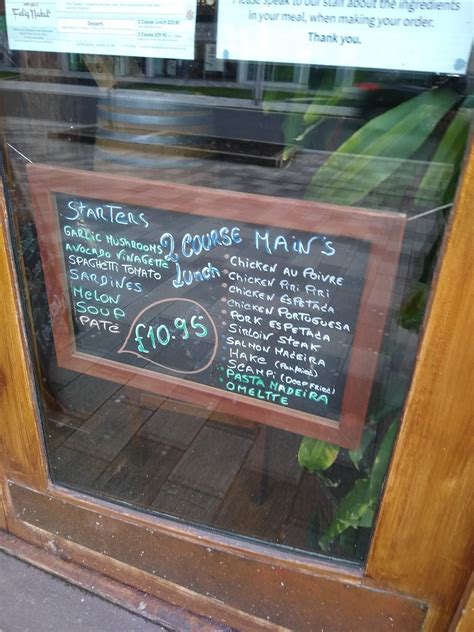 Feliz Natal
Desserts
Please speak to our staff about the ingredients
in your meal, when making your order.
Thank you.
STARTERS
GARLIC MUSHROOMS
AVOCADO VINAGETTE
SPAGHETTI TOMATO
SARDINES
MELON
SOUP
PATE
2 COURSE
Lunch
£10.95
MAIN'S
CHICKEN AU POIVRE
CHICKEN PIRI PIRI
CHICKEN ESPETADA
CHICKEN PORTUGUESA
PORK ESPETADA
SIRLOIN STEAK
SALMON MADEIRA
HAKE (Pan fried)
SCAMPI (DEEP FRIED)
PASTA MADEIRA
OMELTTE